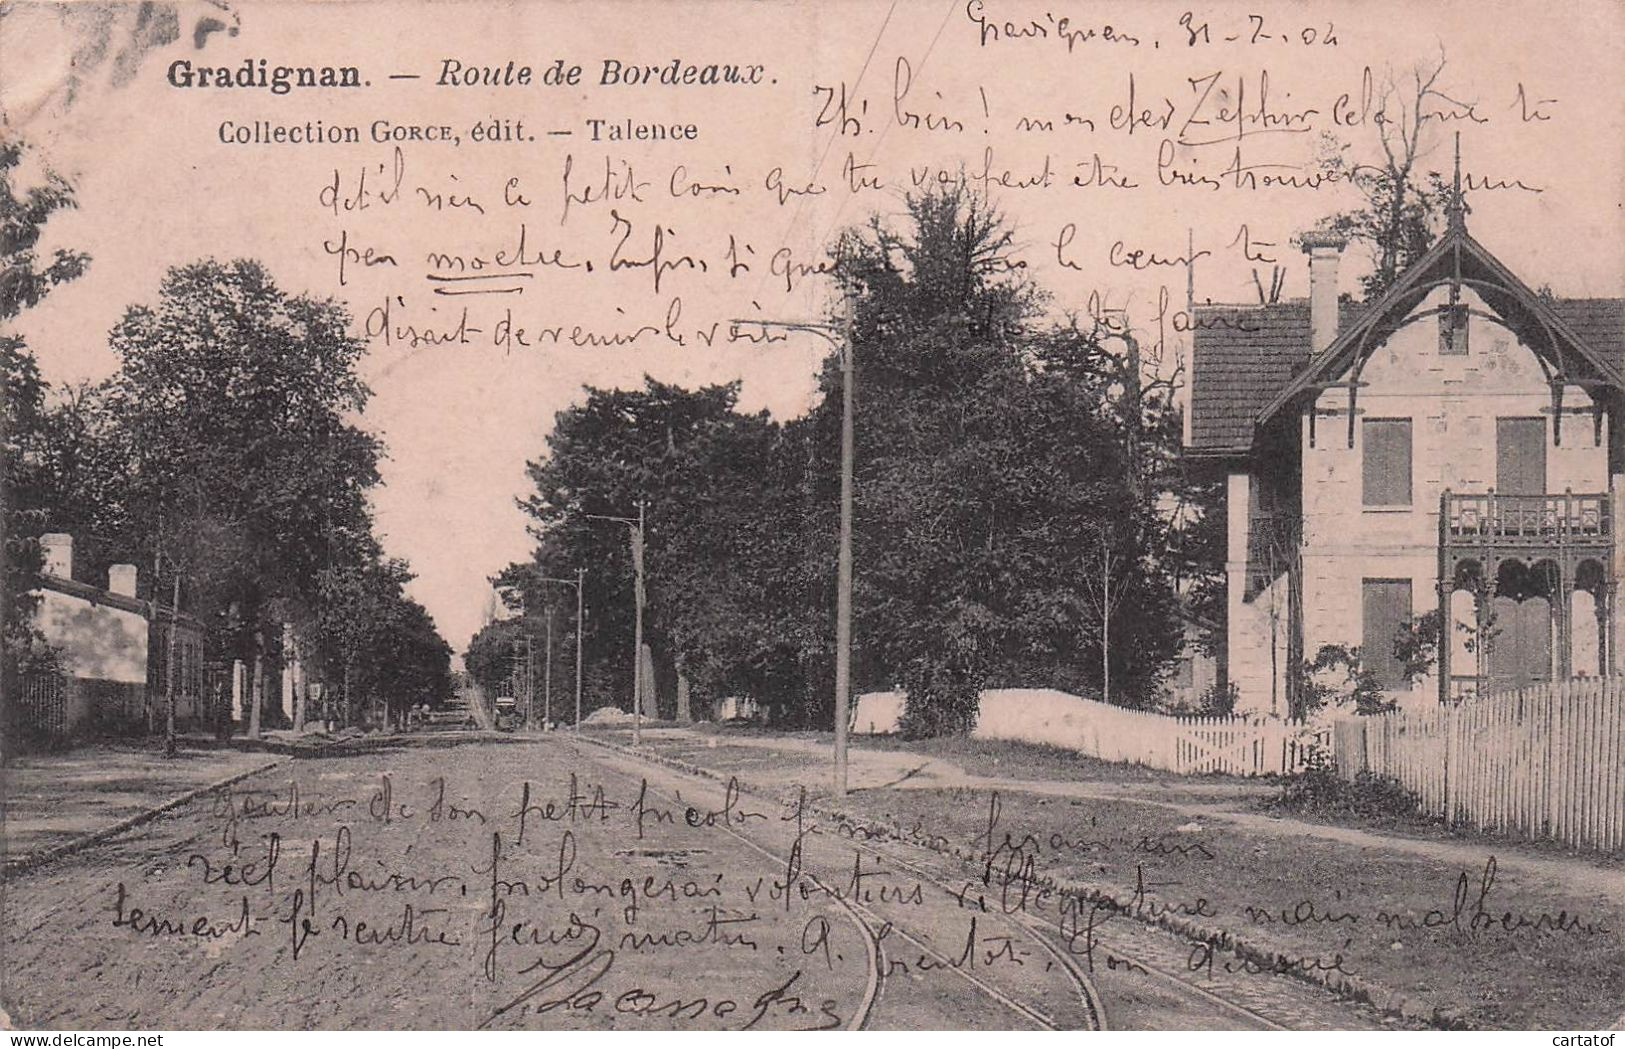 Gradignan, 31-7-04
Gradignan. — Route de Bordeaux.
Collection GORCE, édit. — Talence
Eh! bien! mon cher Zéphir cela que te
dit'il rien ce petit coin que tu vas peut être bien trouver un
peu moche. Enfin, si le cœur te
disait de venir le voir te faire
gouter de bon petit je m'en ferais un
réel plaisir, prolongerai volontiers villégiature mais malheureu
sement je rentre jeudi matin. A bientôt, ton dévoué
Lacassagne
cartatof